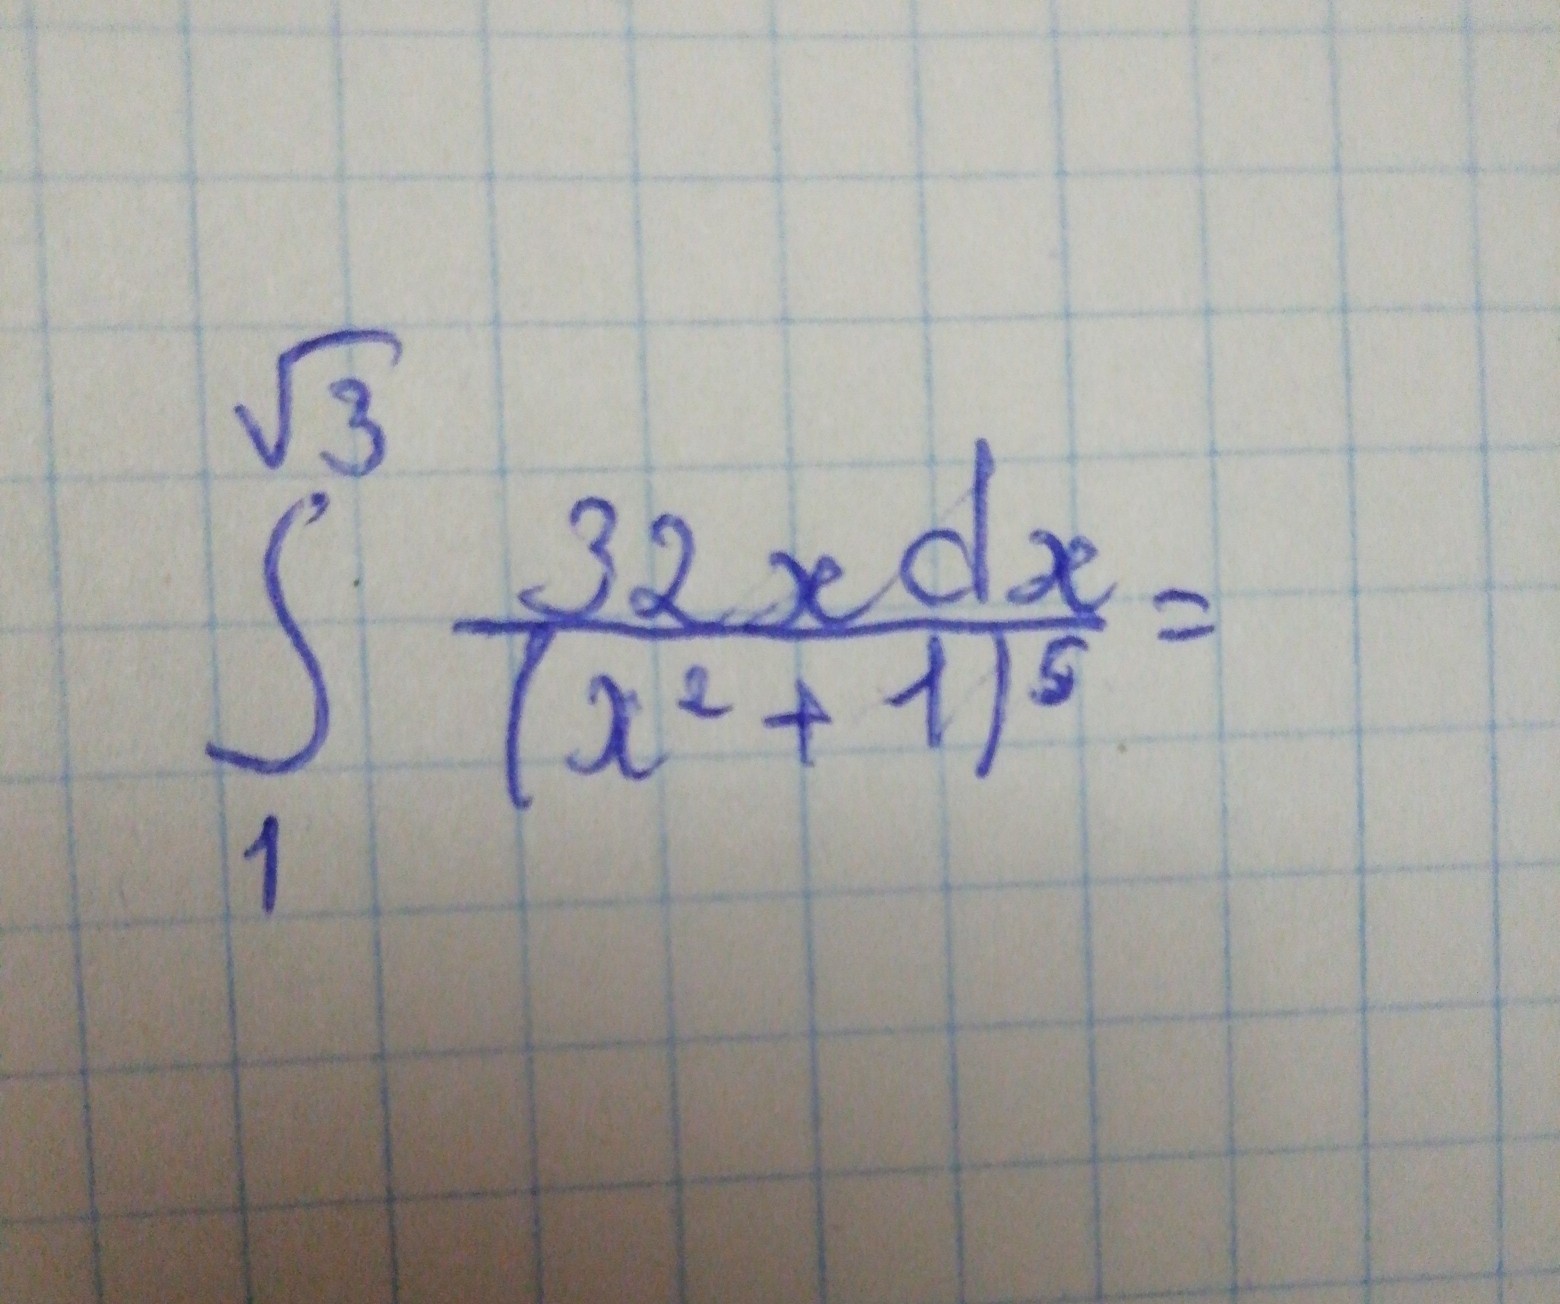 √3
∫ 32xdx/(x²+1)⁵ =
1